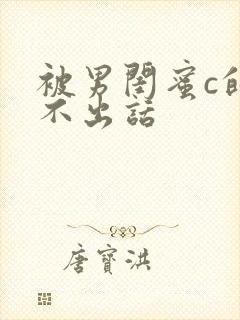 被男閨蜜c的
不出話
唐寶洪